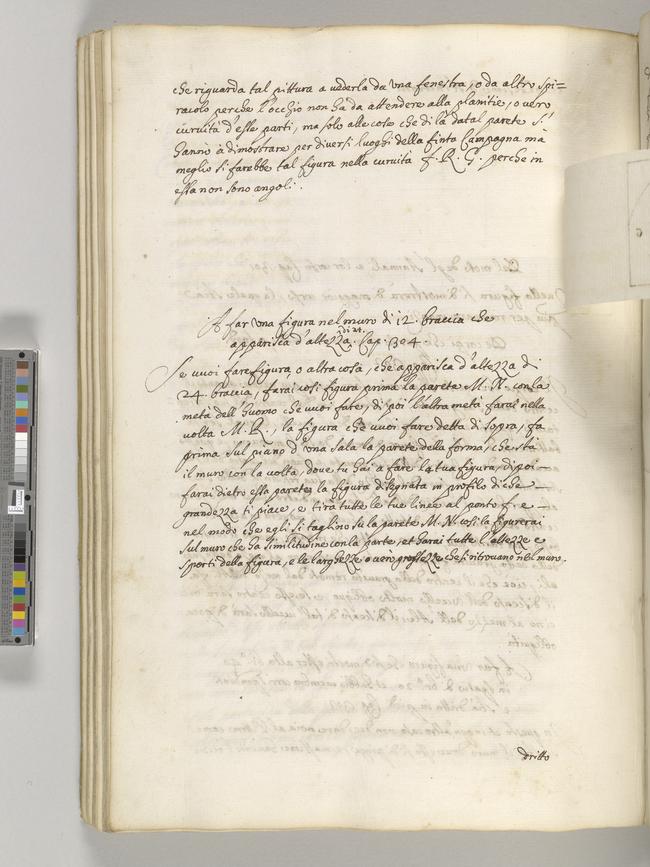 che riguarda tal pittura a uederla da una fenestra, o da altro spi=
racolo perche l'occhio non ha da attendere alla planitie, o uero
curuità d'esse parti, ma solo alle cose che di la da tal parete si
hanno à dimostrare per diuersi luoghi della finta Campagna ma
meglio si farebbe tal figura nella curuità f. R. G. perche in
essa non sono angoli.
A far una figura nel muro di 12. braccia che
apparisca d'altezza di 24. Cap. 304
Se uuoi fare figura, o altra cosa, che apparisca d'altezza di
24. braccia, farai cosi figura prima la parete M. N. con la
metà dell'huomo che uuoi fare, di poi l'altra metà farai nella
uolta M. R., la figura che uuoi fare detta di sopra, fa
prima sul piano d'una sala la parete della forma, che stà
il muro con la uolta, doue tu hai a fare la tua figura, di poi
farai dietro essa parete la figura disegnata in profilo di che
grandezza ti piace, e tira tutte le tue linee al ponto f. e
nel modo che egli si taglino su la parete M. N. cosi la figurerai
sul muro che ha similitudine con la parte, et harai tutte l'altezze e
sporti della figura, e le larghezze o uero grossezze che si ritrouano nel muro
dritto